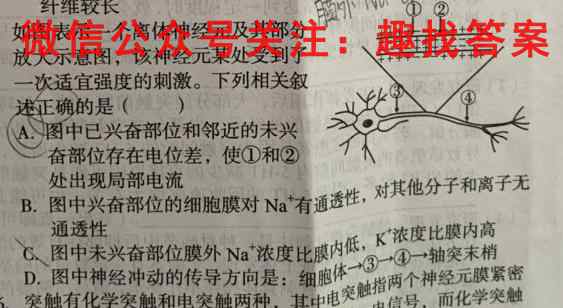 纤维较长
① ②
如图表示一个离体神经元及其部分
微信公众号关注：趣找答案
放大示意图，该神经元某处受到了
一次适宜强度的刺激。下列相关叙
述正确的是（ ）
③ ④
A. 图中已兴奋部位和邻近的未兴
奋部位存在电位差，使①和②
处出现局部电流
B. 图中兴奋部位的细胞膜对 Na⁺有通透性，对其他分子和离子无
通透性
C. 图中未兴奋部位膜外 Na⁺浓度比膜内低，K⁺浓度比膜内高
D. 图中神经冲动的传导方向是：细胞体→③→④→轴突末梢
突触有化学突触和电突触两种，其中电突触指两个神经元膜紧密
电信号，而化学突触